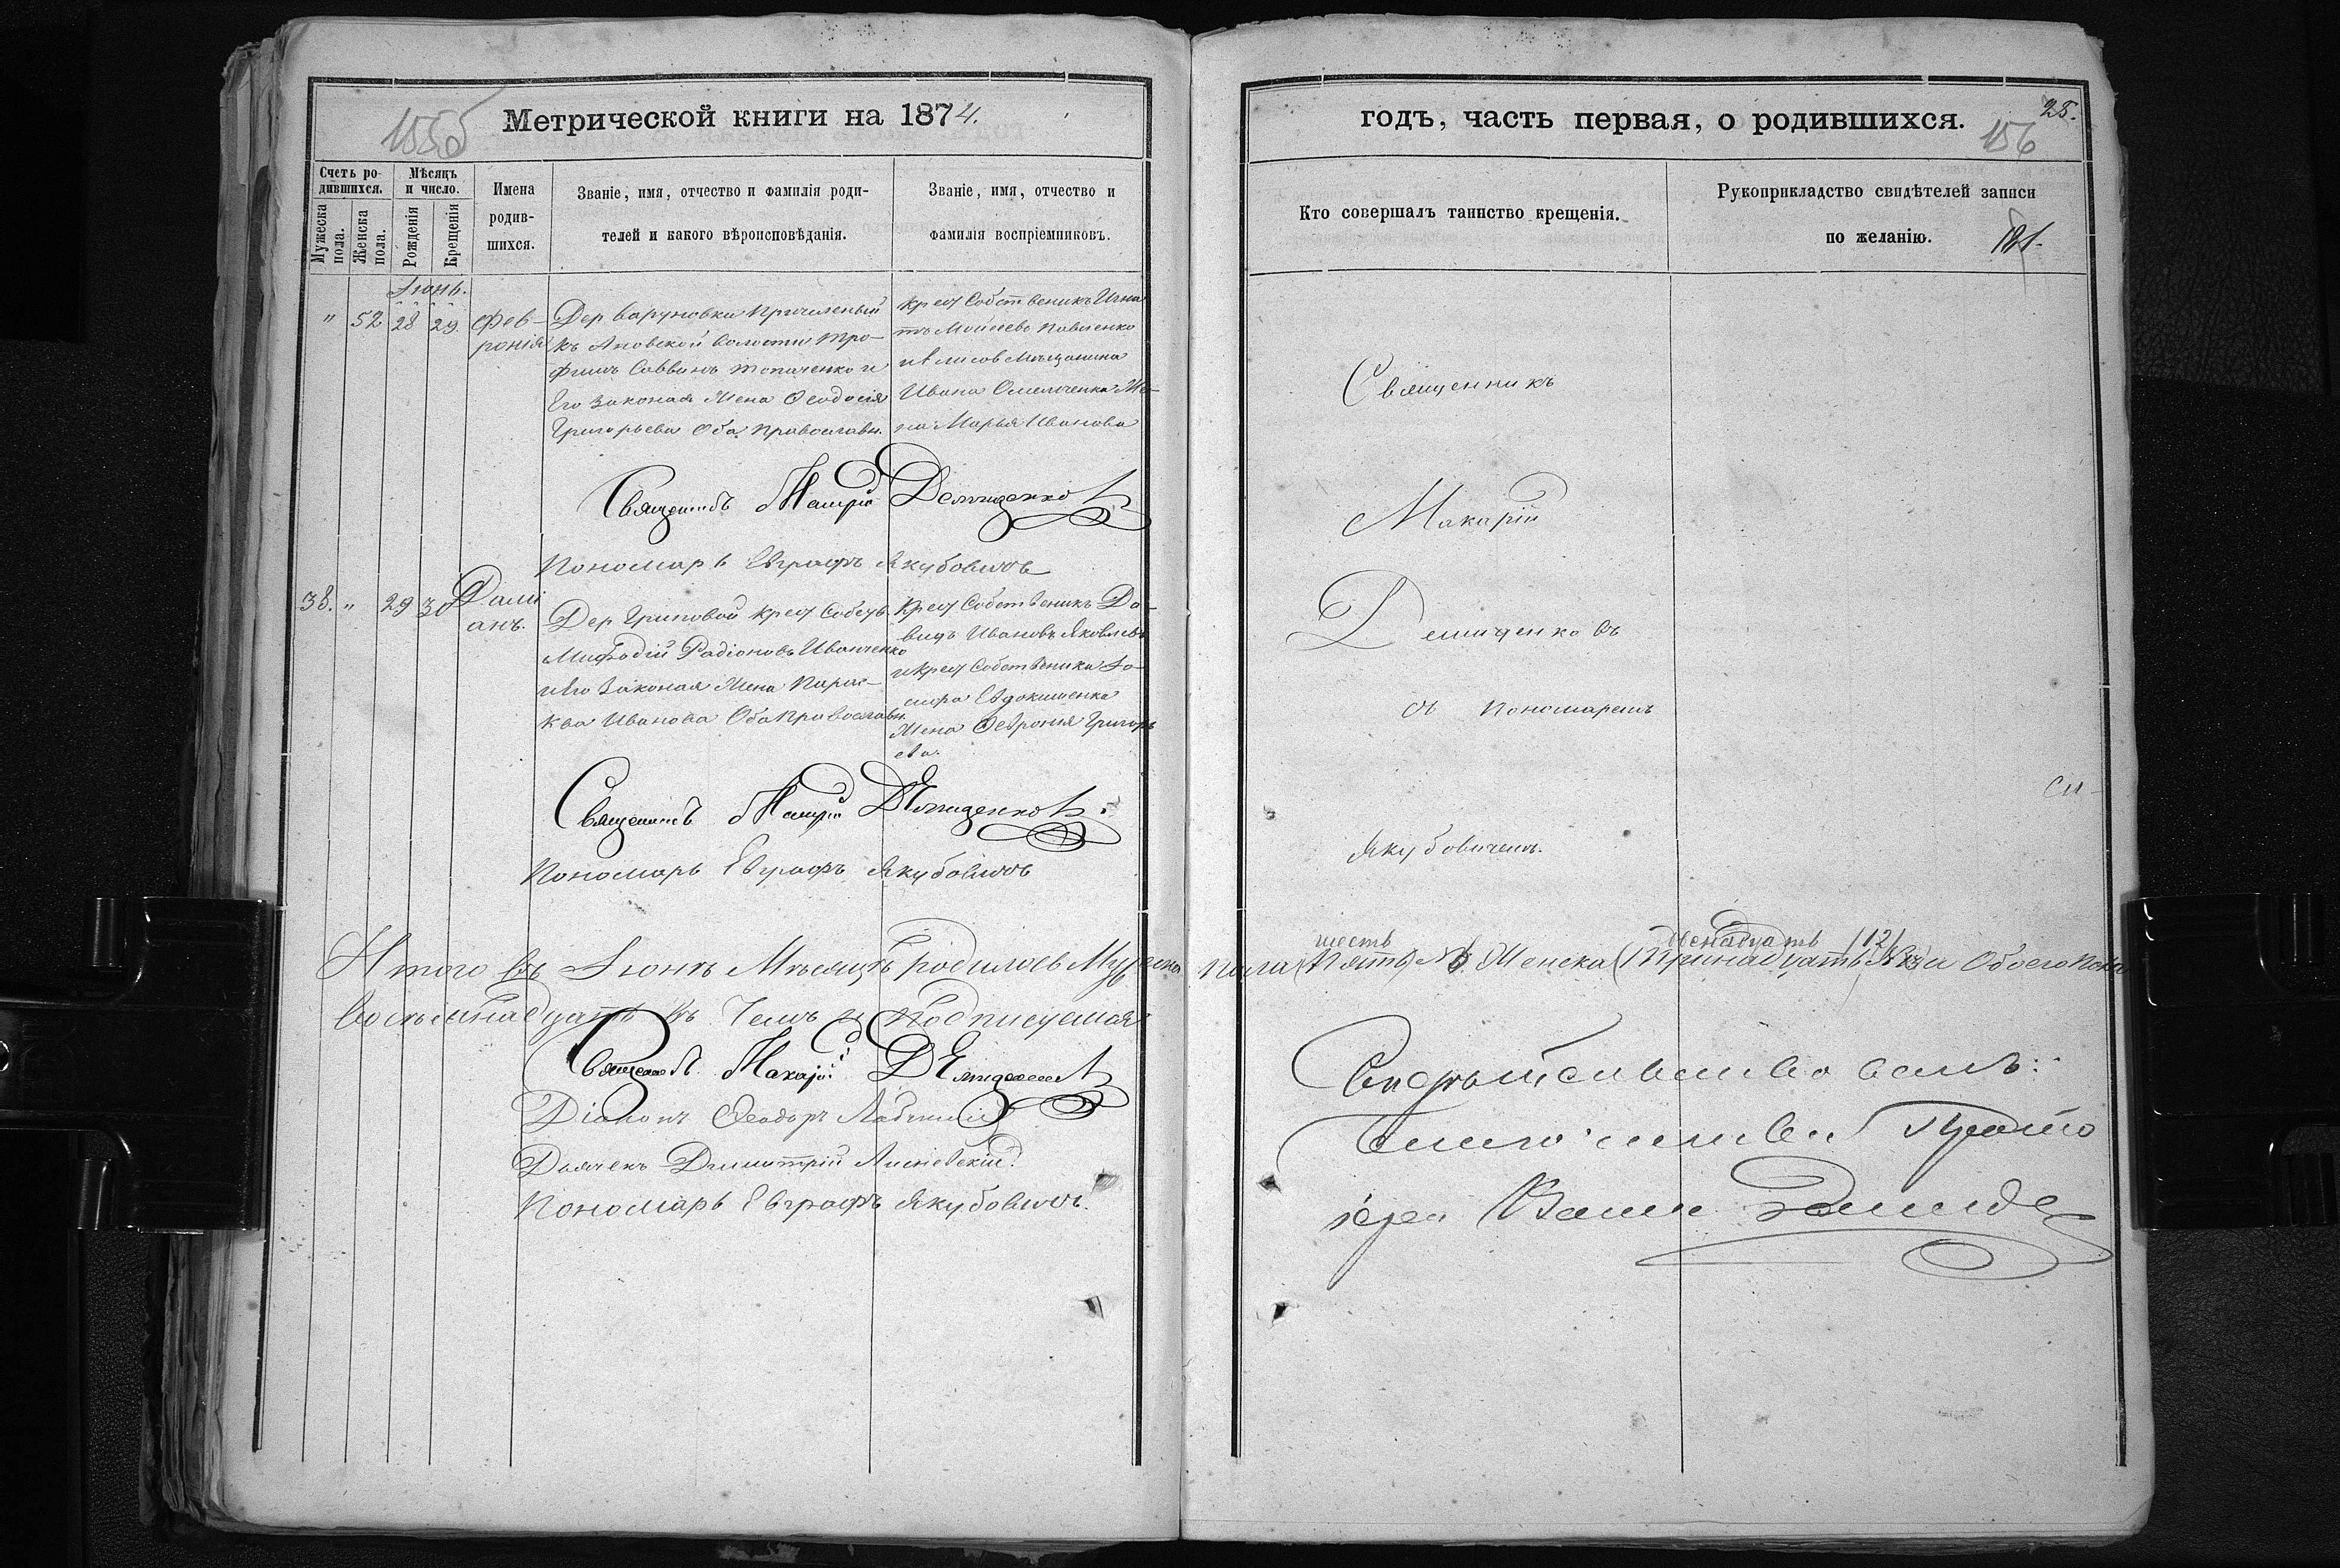 Метрической книги на 1874.
Счетъ ро-
дившихся.
Мѣсяцъ
и число.
Мужеска
пола.
Женска
пола.
Рожденія
Крещенія
Имена
родив-
шихся.
Званіе, имя, отчество и фамилія роди-
телей и какого вѣроисповѣданія.
Званіе, имя, отчество и
фамилія воспріемниковъ.
Іюнь.
" 52 28 29. Фев-
ронія
Дер Варуновки Причисленый
къ Ановской волости Тро-
фимъ Саввинъ и
Его законая Жена Ѳеодосія
Григорьева Оба Православн.
Крест Собственикъ Игна
тъ Моисеевъ Павленко
Мѣщанина
Ивана Омельченка Же-
на Марья Иванова
Священникъ Макарій Демиденковъ
Пономарь Евграфъ Якубовичъ
38. " 29 30 Дамі
анъ.
Дер Гриповой Крест Собств
Мифодій Радіоновъ Иванченко
и Его Законая Жена Парас-
ква Иванова Оба Православн.
Крест Собственикъ Да-
видъ Ивановъ Яковлевъ
и Крест Собственика Іо-
сифа Евдокименка
Жена Февронія Григорь
ева.
Священникъ Макарій Демиденковъ.
Пономарь Евграфъ Якубовичъ
Итого въ Іюнѣ Мѣсяцѣ родилось Мужеска
восемнадцать въ Чемъ и Подписуемся
Священникъ Макарій Демиденковъ
Діаконъ Ѳеодоръ
Дьячекъ Димитрій Лисневскій
Пономарь Евграфъ Якубовичъ.
годъ, часть первая, о родившихся.
28.
156
Кто совершалъ таинство крещенія.
Рукоприкладство свидѣтелей записи
по желанію.
181.
Священникъ
Макарій
Демиденковъ
съ Пономаремъ
Якубовичемъ.
шесть
двенадцать (12)
Пола (Пять) Женска (Тринадцать) а Обоего Пола